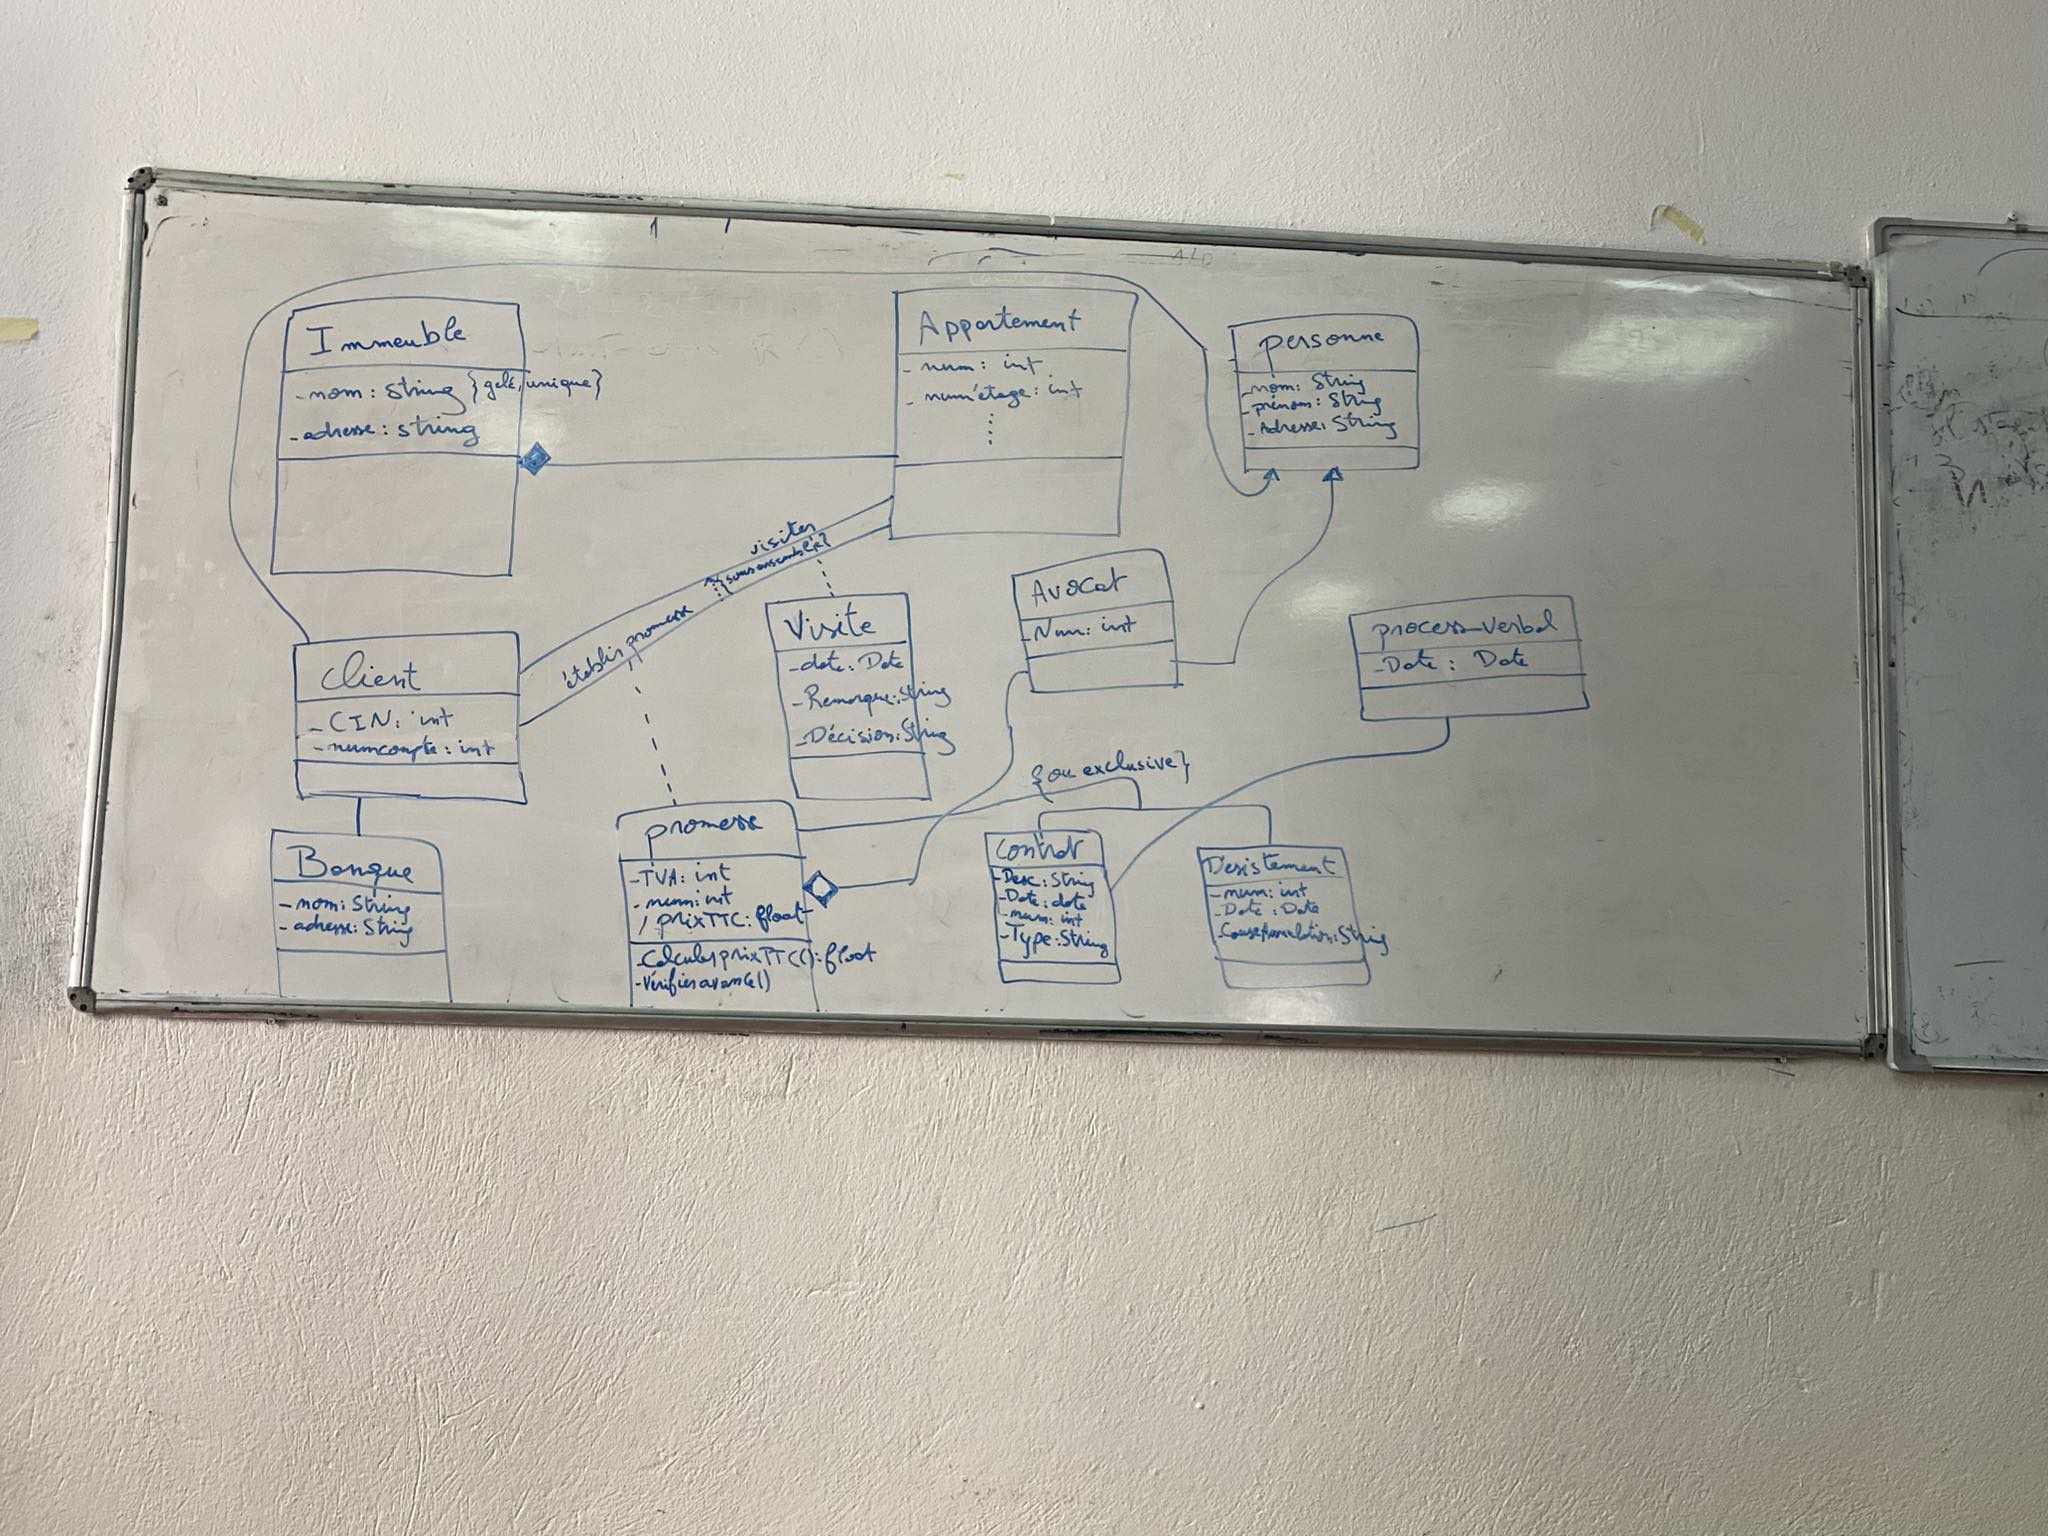 Immeuble
- nom : String {gelé, unique}
- adresse : string
Appartement
- num : int
- numétage : int
personne
- nom : String
- prénom : String
- Adresse : String
visiter
{sous ensemble}
établir promesse
Client
- CIN : int
- numcompte : int
Visite
- date : Date
- Remarque : String
- Décision : String
Avocat
- Num : int
process_verbal
- Date : Date
{ou exclusive}
Banque
- nom : String
- adresse : String
promesse
- TVA : int
- num : int
/ prixTTC : float
- CalculerprixTTC() : float
- Vérifieravance()
Contrat
- Desc : String
- Date : date
- num : int
- Type : String
Désistement
- num : int
- Date : Date